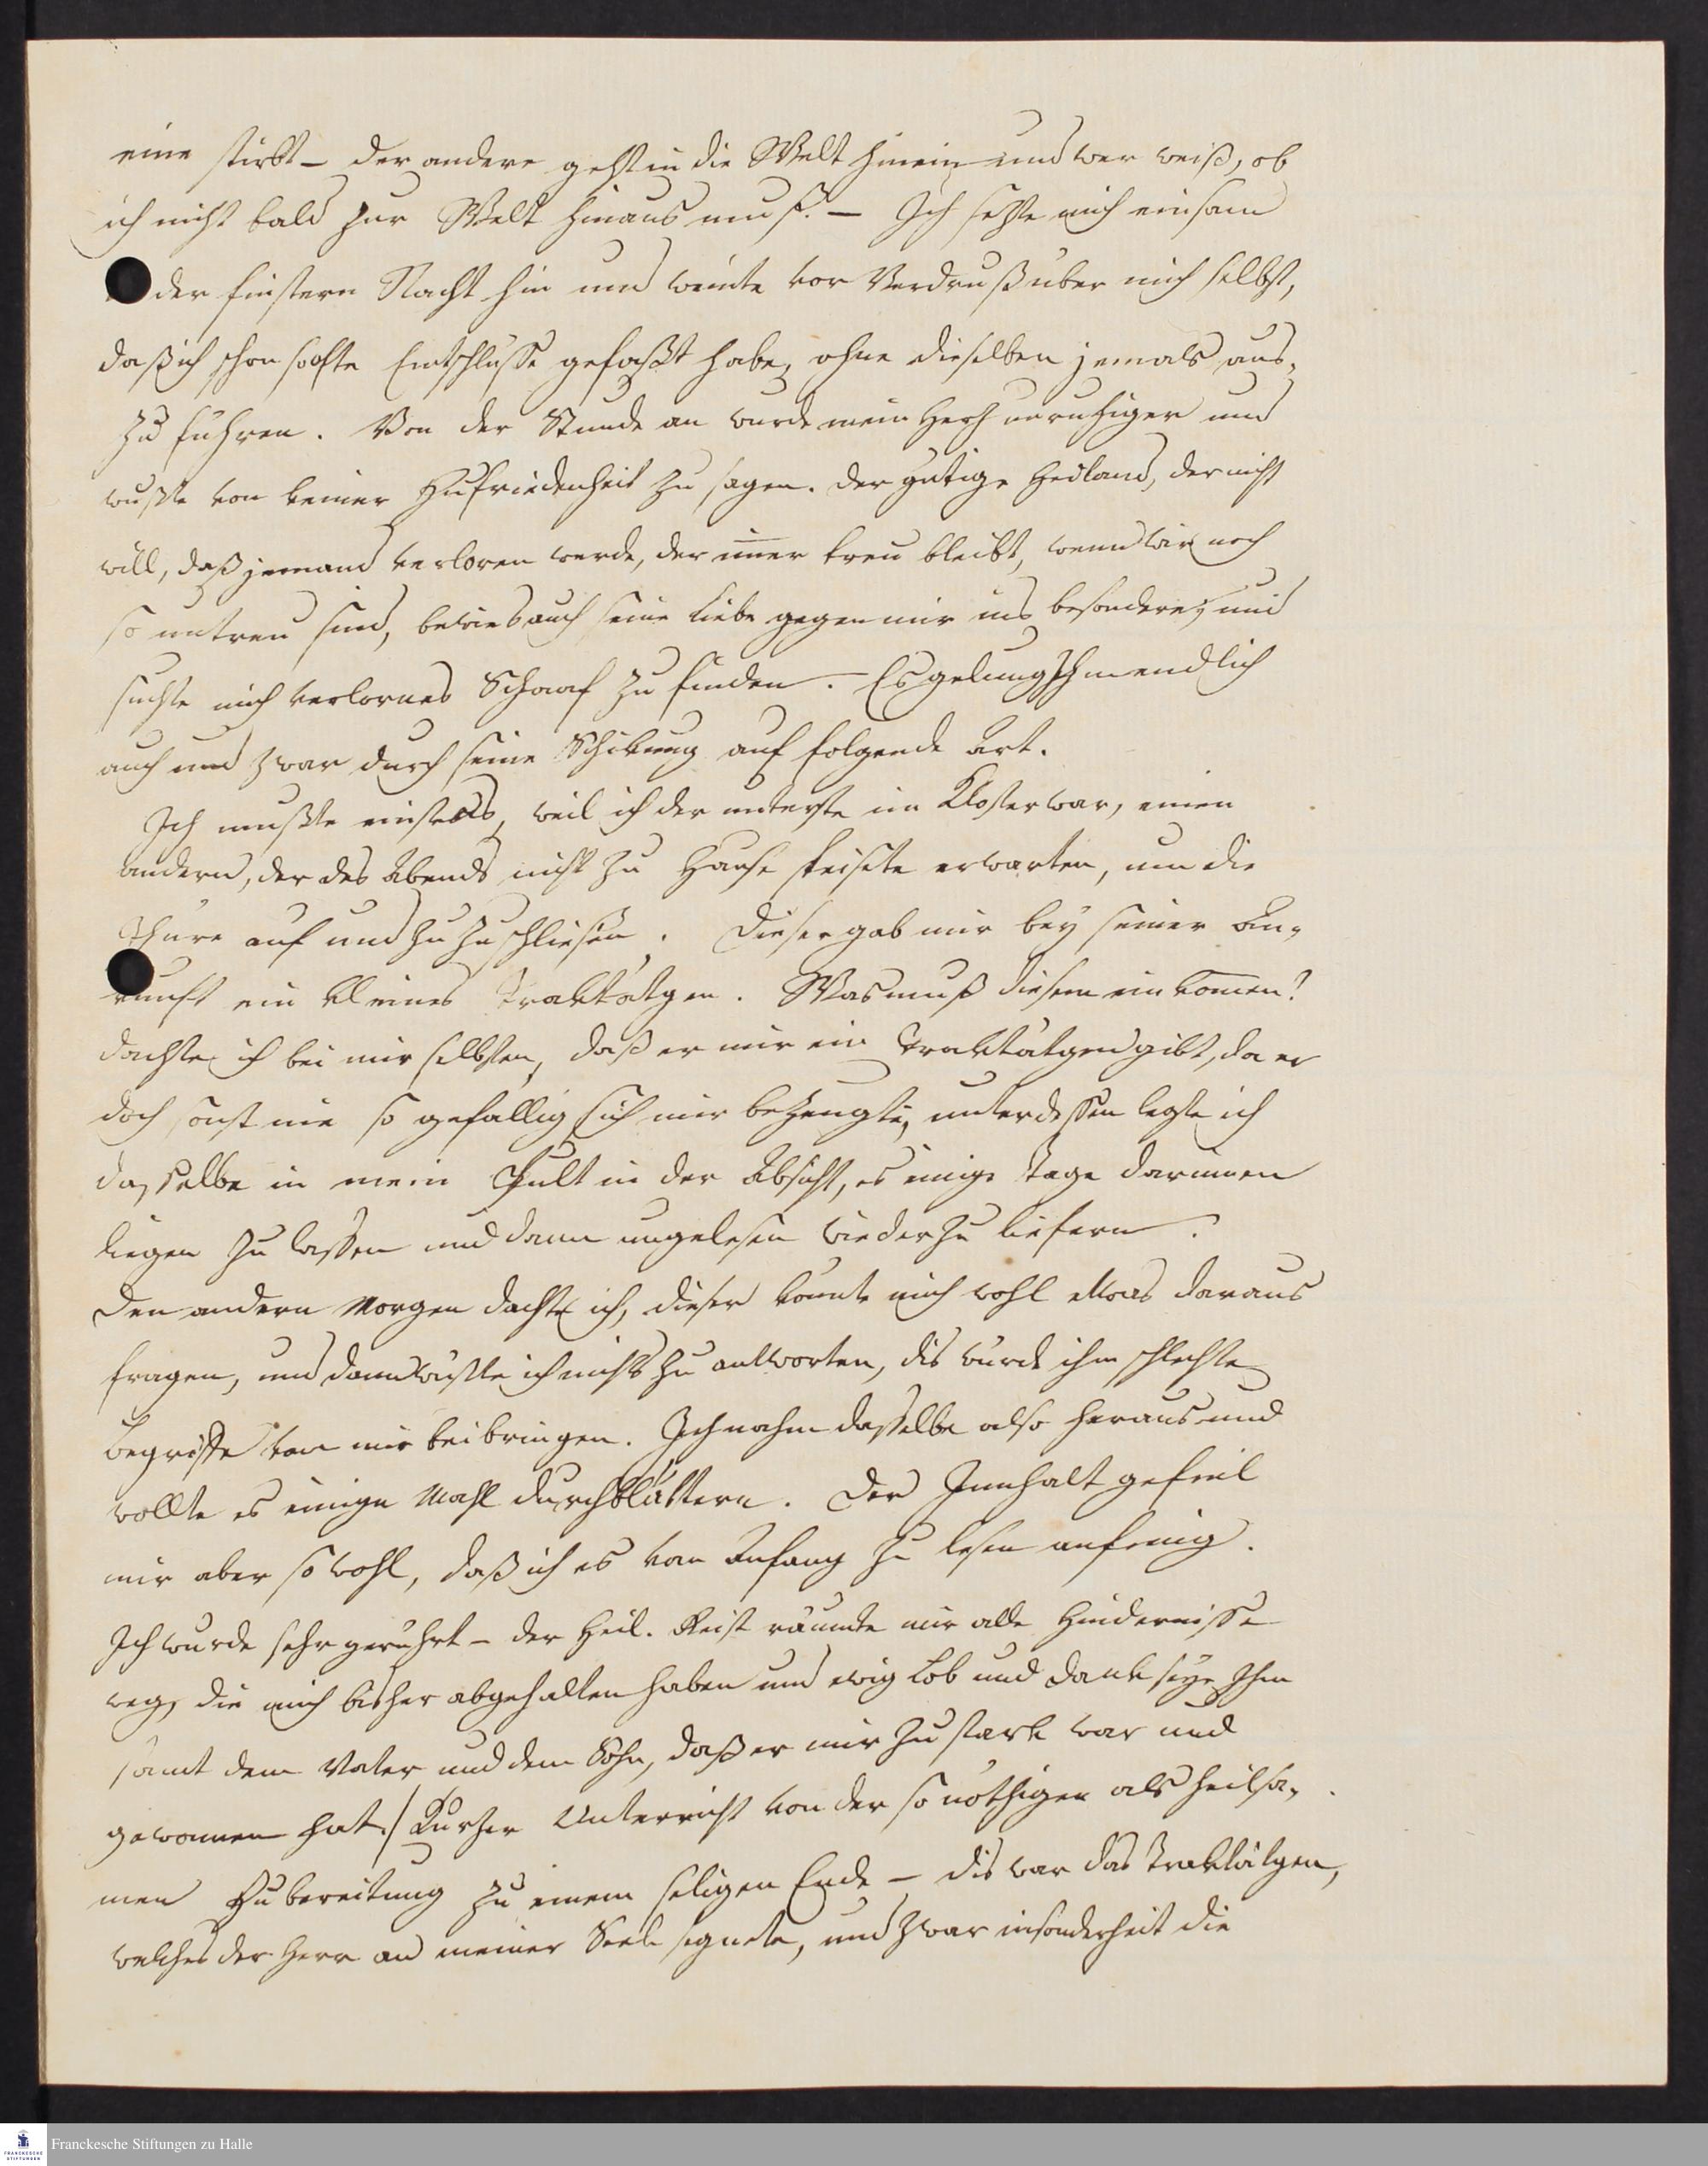 eine stirbt – der andere geht in die Welt hinein und wer weiß, ob
ich nicht bald zur Welt hinaus muß. – Ich sezte mich einsam
der finstern Nacht hin und weinte vor Verdruß über mich selbst,
daß ich schon so ofte Entschlüsse gefaßt habe, ohne dieselben jemals aus-
zu führen. Von der Stunde an wurde mein Herz unruhiger und
wußte von keiner Zufriedenheit zu sagen. Der gütige Heiland, der nicht
will, daß jemand verloren werde, der im̅er treu bleibt, wenn wir noch
so untreu sind, bewies auch seine Liebe gegen mir ins besondere, und
suchte mich verlornes Schaaf zu finden. – Es gelung Ihm endlich
auch und zwar durch seine Schikung auf folgende Art.
Ich mußte einstens, weil ich der unterste im Kloster war, einen
andern, der des Abends nicht zu Hause speiste erwarten, um die
Thüre auf und zu zu schliesen. Dieser gab mir bey seiner An-
kunft ein kleines Traktätgen. Was muß diesem ein kom̅en?
dachte ich bei mir selbsten, daß er mir ein Traktätgen gibt, da er
doch sonst nie so gefällig sich mir bezeugte, unterdessen legte ich
dasselbe in mein Pult in der Absicht, es einige Tage darinnen
liegen zu lassen und dann ungelesen wieder zu liefern.
Den andern Morgen dachte ich, dieser könnte mich wohl etwas daraus
fragen, und dann wüßte ich nichts zu antworten, dis würde ihm schlechte
Begriffe von mir beibringen. Ich nahm dasselbe also heraus und
wollte es einige Mahl durchblättern. Der Innhalt gefiel
mir aber so wohl, daß ich es von Anfang zu lesen anfieng.
Ich wurde sehr gerührt – der Heil. Geist räumte mir alle Hindernisse
weg, die mich bisher abgehalten haben und ewig Lob und Dank seye Ihm
samt dem Vater und dem Sohn, daß er mir zu stark war und
gewonnen hat./ Kurzer Unterricht von der so nöthigen als heilsa-
men Zubereitung zu einem seligen Ende – dis war das Traktätgen,
welches der Herr an meiner Seele segnete, und zwar insonderheit die
Franckesche Stiftungen zu Halle
FRANCKESCHE STIFTUNGEN